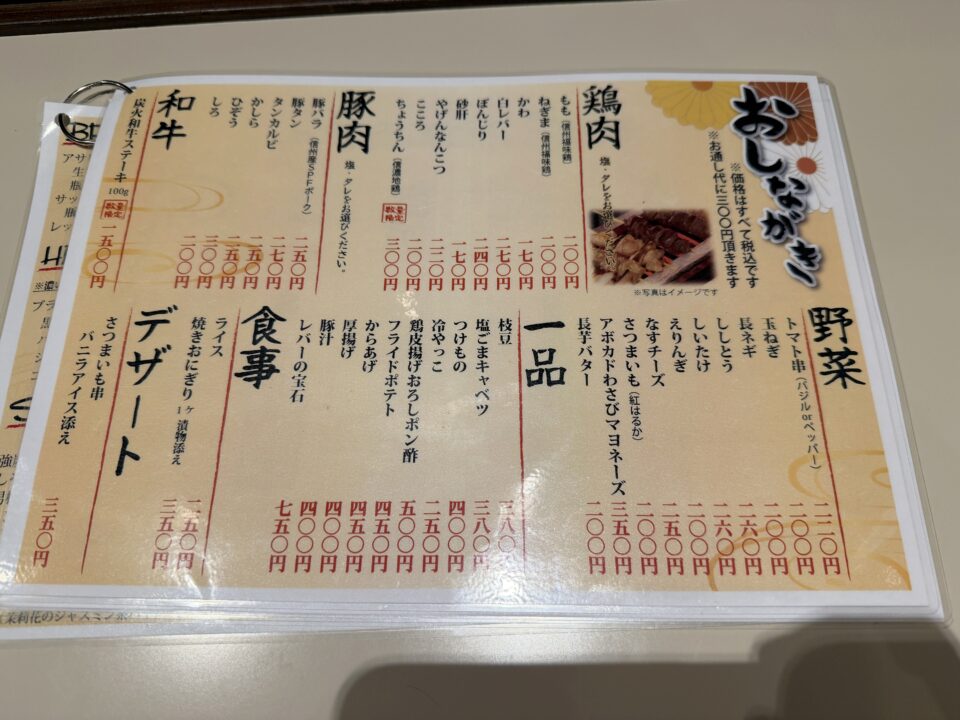 おしながき
※価格はすべて税込です
※お通し代に三〇〇円頂きます
鶏肉 塩・タレをお選びください。
※写真はイメージです
もも(信州福味鶏) 二〇〇円
ねぎま(信州福味鶏) 二〇〇円
かわ 一七〇円
白レバー 二七〇円
ぼんじり 二四〇円
砂肝 一七〇円
やげんなんこつ 二二〇円
こころ 二〇〇円
ちょうちん(信濃地鶏) 数量限定 三〇〇円
豚肉 塩・タレをお選びください。
豚バラ(信州産SPFポーク) 二五〇円
豚タン 二七〇円
タンカルビ 二五〇円
かしら 二五〇円
ひぞう 二〇〇円
しろ 二〇〇円
和牛
炭火和牛ステーキ 100g 数量限定 一五〇〇円
野菜
トマト串(バジルorペッパー) 二二〇円
玉ねぎ 二〇〇円
長ネギ 二六〇円
ししとう
しいたけ 二〇〇円
えりんぎ
なすチーズ 二五〇円
さつまいも(紅はるか) 二〇〇円
アボカドわさびマヨネーズ 三五〇円
長芋バター 二〇〇円
一品
枝豆 三八〇円
塩ごまキャベツ 三八〇円
つけもの 四〇〇円
冷やっこ 二五〇円
鶏皮揚げおろしポン酢 五〇〇円
フライドポテト 四五〇円
からあげ 四五〇円
厚揚げ 四〇〇円
豚汁 四〇〇円
レバーの宝石 七五〇円
食事
ライス 二五〇円
焼きおにぎり 1ヶ 漬物添え 三五〇円
デザート
さつまいも串
バニラアイス添え 三五〇円
茉莉花のジャスミン茶